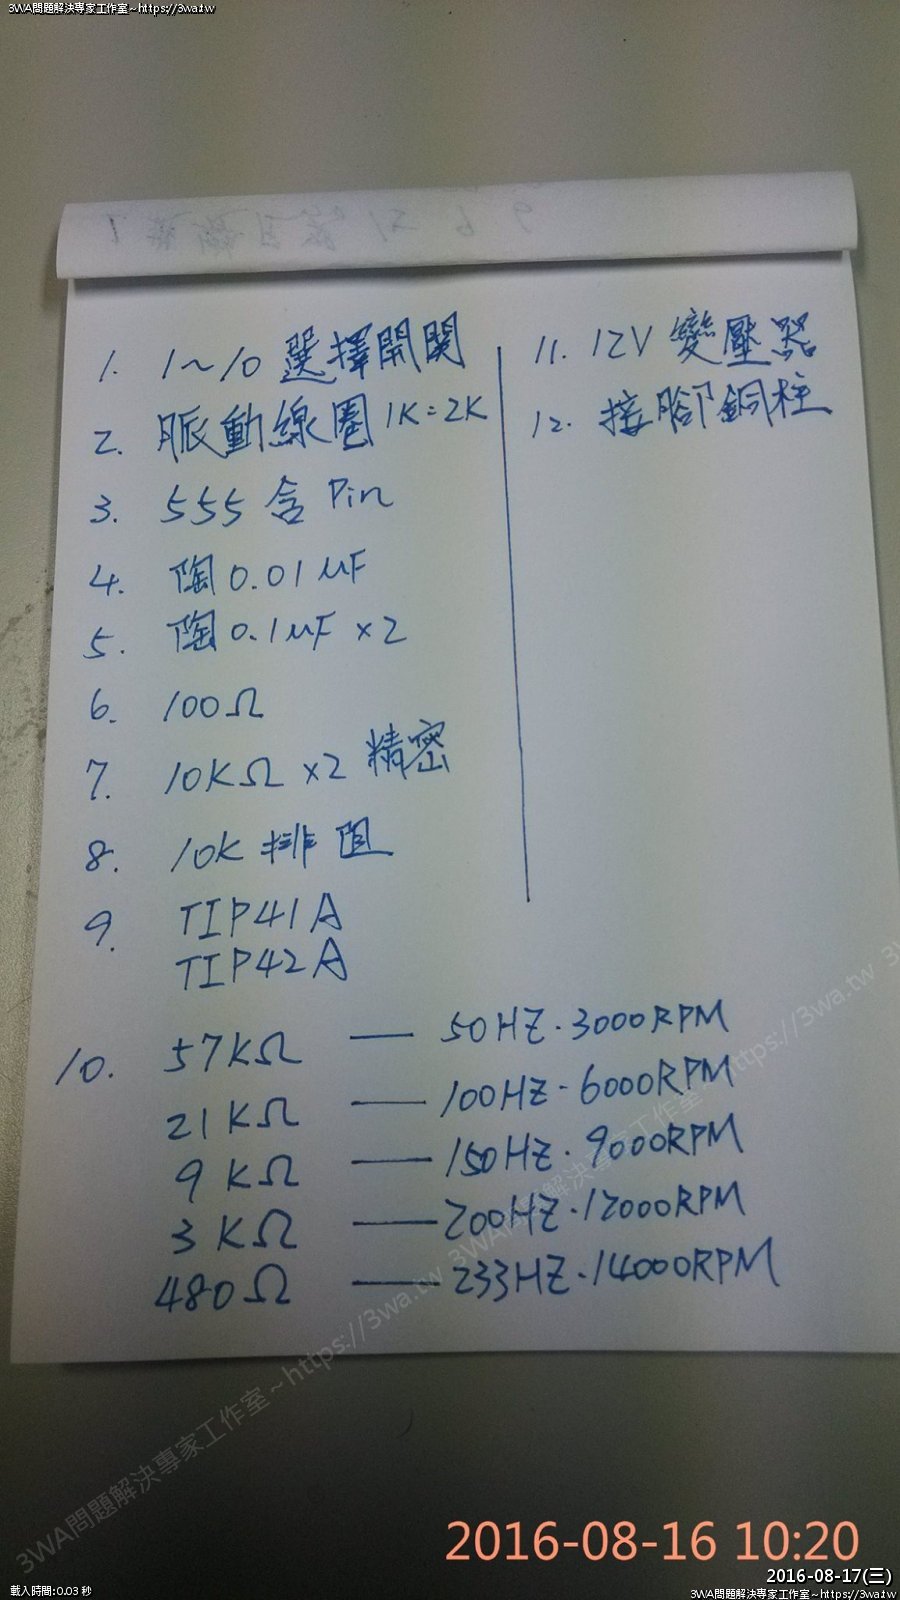 3WA問題解決專家工作室~https://3wa.tw
1. 1~10 選擇開関
2. 脈動線圈 1K=2K
3. 555 含 Pin
4. 陶 0.01 μF
5. 陶 0.1μF ×2
6. 100Ω
7. 10KΩ ×2 精密
8. 10K 排阻
9. TIP41A
TIP42A
10. 57KΩ — 50HZ.3000RPM
21KΩ — 100HZ.6000RPM
9KΩ — 150HZ.9000RPM
3KΩ — 200HZ.12000RPM
480Ω — 233HZ.14000RPM
11. 12V 變壓器
12. 接腳銅柱
3WA問題解決專家工作室~https://3wa.tw 3WA問題解決專家工作室~https://3wa.tw 3
2016-08-16 10:20
2016-08-17(三)
載入時間:0.03 秒
3WA問題解決專家工作室~https://3wa.tw